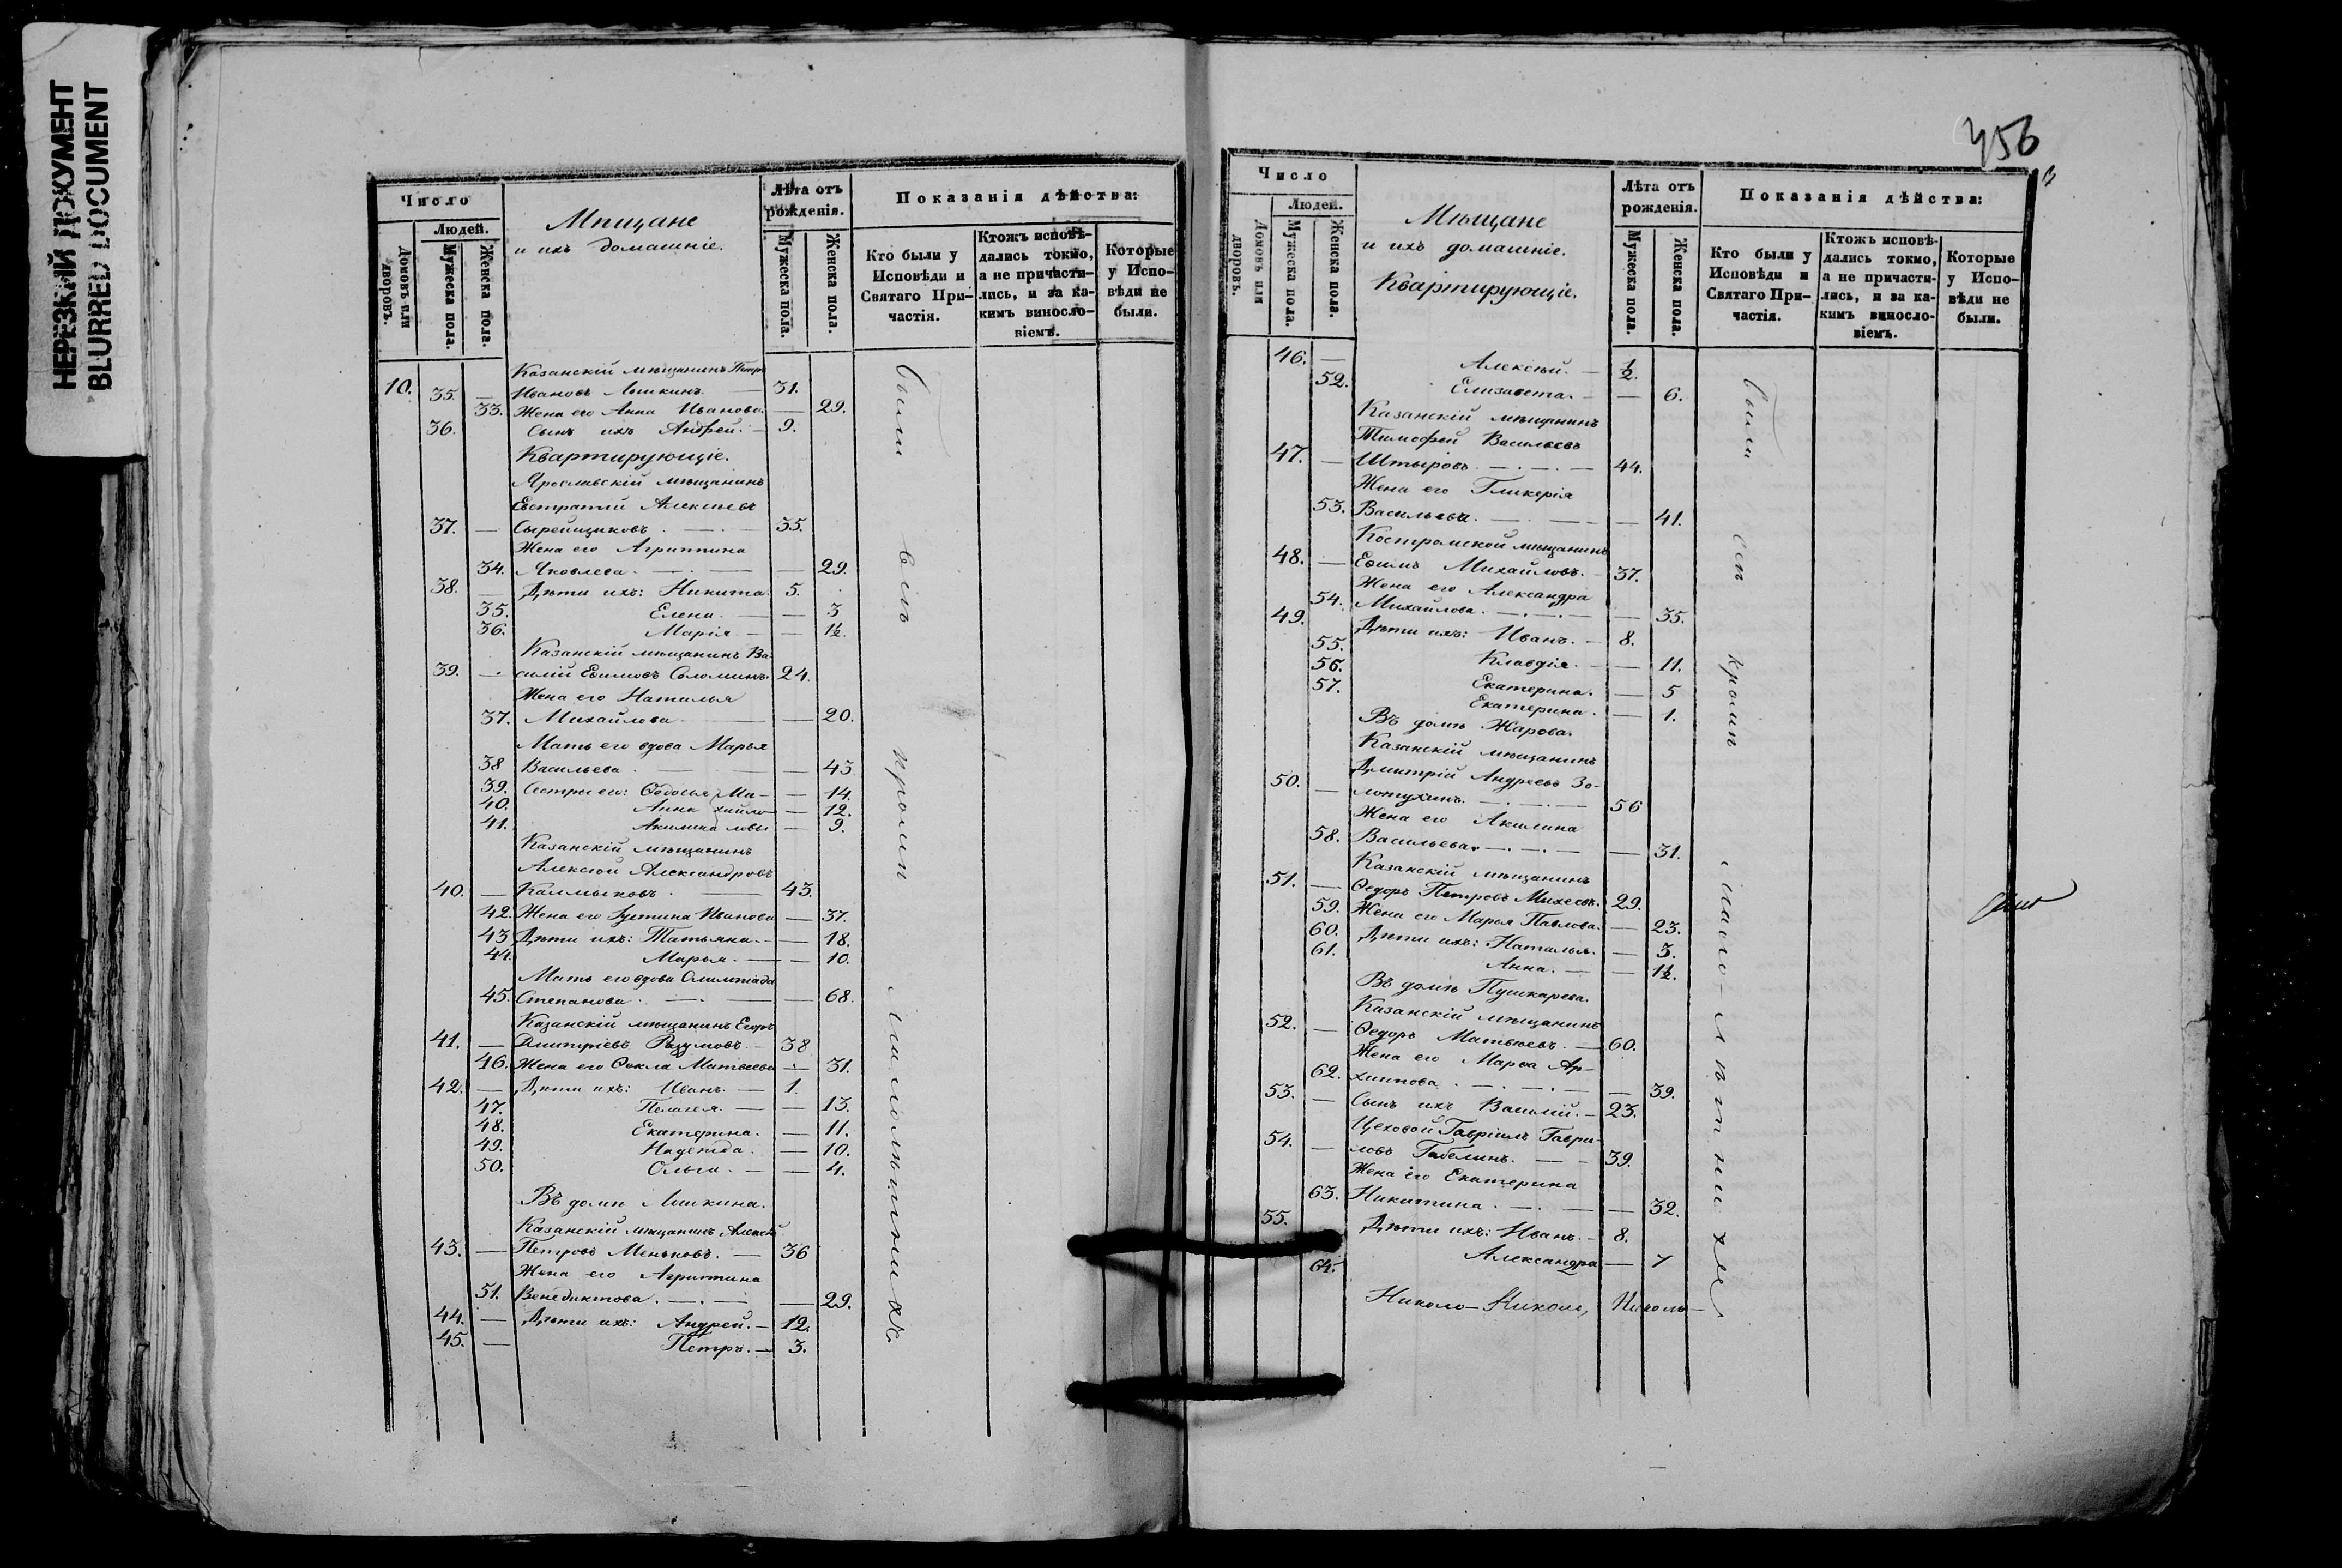 НЕРЕЗКИЙ ДОКУМЕНТ
BLURRED DOCUMENT
Число
Людей.
Домовъ или дворовъ.
Мужеска пола.
Женска пола.
Мѣщане
и ихъ домашніе.
Лѣта отъ рожденія.
Мужеска пола.
Женска пола.
Показанія дѣйства:
Кто были у Исповѣди и Святаго Причастія.
Ктожъ исповѣдались токмо, а не причастились, и за какимъ винословіемъ.
Которые у Исповѣди не были.
Казанскій мѣщанинъ Петръ
10. 35. — Ивановъ Лишкинъ. — 31.
33. Жена его Анна Иванова. — 29.
36. Сынъ ихъ Андрей. — 9.
Квартирующіе.
Ярославскій мѣщанинъ
Евстратій Алексѣевъ
37. — Сырейщиковъ. — . — 35.
Жена его Агриппина
34. Яковлева. — . — — 29.
38. — Дѣти ихъ: Никита. 5.
35. Елена. — — 3
36. Марія. — — 1½.
Казанскій мѣщанинъ Ва-
39. — силій Ефимовъ Соломинъ. 24.
Жена его Наталья
37. Михайлова — — 20.
Мать его вдова Марья
38 Васильева. — — 43
39. Сестры его: Ѳодосья Ми- — 14.
40. Анна хайло- — 12.
41. Акилина вы — 9.
Казанскій мѣщанинъ
Алексѣй Александровъ
40. — Калмыковъ. — 43.
42. Жена его Іустина Иванова — 37.
43 Дѣти ихъ: Татьяна. — — 18.
44. Марья. — — 10.
Мать его вдова Олимпіада
45. Степанова. — . — 68.
Казанскій мѣщанинъ Егоръ
41. — Дмитріевъ Разумовъ. — 38
46. Жена его Ѳекла Матвѣева — 31.
42. — Дѣти ихъ: Иванъ. — 1.
47. Пелагея. — — 13.
48. Екатерина. — 11.
49. Надежда. — 10.
50. Ольга. — — 4.
Въ домѣ Лишкина.
Казанскій мѣщанинъ Алексѣй
43. — Петровъ Меньковъ. — 36
Жена его Агрипина
51. Венедиктова. — . — — 29.
44. — Дѣти ихъ: Андрей. — 12.
45. — Петръ. — 3.
были всѣ кромѣ малолѣтнихъ.
456
Число
Людей.
Домовъ или дворовъ.
Мужеска пола.
Женска пола.
Мѣщане
и ихъ домашніе.
Квартирующіе.
Лѣта отъ рожденія.
Мужеска пола.
Женска пола.
Показанія дѣйства:
Кто были у Исповѣди и Святаго Причастія.
Ктожъ исповѣдались токмо, а не причастились, и за какимъ винословіемъ.
Которые у Исповѣди не были.
46. — Алексѣй. — ½.
52. Елизавета. — — 6.
Казанскій мѣщанинъ
Тимофей Васильевъ
47. — Штыровъ. — . — . — 44.
Жена его Гликерія
53. Васильева. — . — — 41.
Костромской мѣщанинъ
48. — Ефимъ Михайловъ. — 37.
Жена его Александра
54. Михайлова. — . — . — 35.
49. Дѣти ихъ: Иванъ. — 8.
55. Клавдія. — — 11.
56. Екатерина. — 5
57. Екатерина. — 1.
Въ домѣ Жарова.
Казанскій мѣщанинъ
Дмитрій Андреевъ Зо-
50. — лотухинъ. — . — . — 56
Жена его Акилина
58. Васильева. — . — . — 31.
Казанскій мѣщанинъ
51. — Ѳедоръ Петровъ Михеевъ. 29.
59. Жена его Марья Павлова. — 23.
60. Дѣти ихъ: Наталья. — 3.
61. Анна. — — 1½.
Въ домѣ Пушкарева.
Казанскій мѣщанинъ
52. — Ѳедоръ Матвѣевъ. — 60.
Жена его Марѳа Ар-
62. хиппова. — . — . — 39.
53. — Сынъ ихъ Василій. — 23.
Цеховой Гавріилъ Гаври-
54. — ловъ Габелинъ. — — 39.
Жена его Екатерина
63. Никитина. — . — — 32.
55. Дѣти ихъ: Иванъ. — 8.
64. Александра — 7
были всѣ кромѣ мало-лѣтнихъ